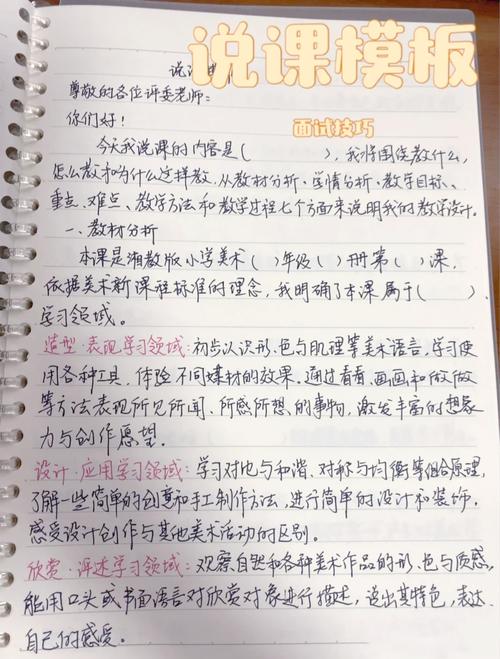 说课模板
面试技巧
说课
尊敬的各位评委老师:
你们好!
今天我说课的内容是( ),我将围绕教什么,
怎么教和为什么这样教,从教材分析、学情分析、教学目标、
重点、难点、教学方法和教学过程七个方面来说明我的教学设计。
一、教材分析
本课是湘教版小学美术( )年级( )册第( )课,
依据美术新课程标准的理念,我明确了本课属于( )
学习领域。
造型·表现学习领域:初步认识形、色与肌理等美术语言,学习使
用各种工具,体验不同媒材的效果,通过看看、画画和做做
等方法表现所见所闻、所感所想的事物,激发丰富的想象
力与创作愿望。
设计·应用学习领域:学习对比与和谐、对称与均衡等组合原理,
了解一些简单的创意和手工制作方法,进行简单的设计和装饰,
感受设计创作与其他美术活动的区别。
欣赏·评述学习领域:观察自然和各种美术作品的形、色与质感,
能用口头或书面语言对欣赏对象进行描述,说出其特色,表达
自己的感受。